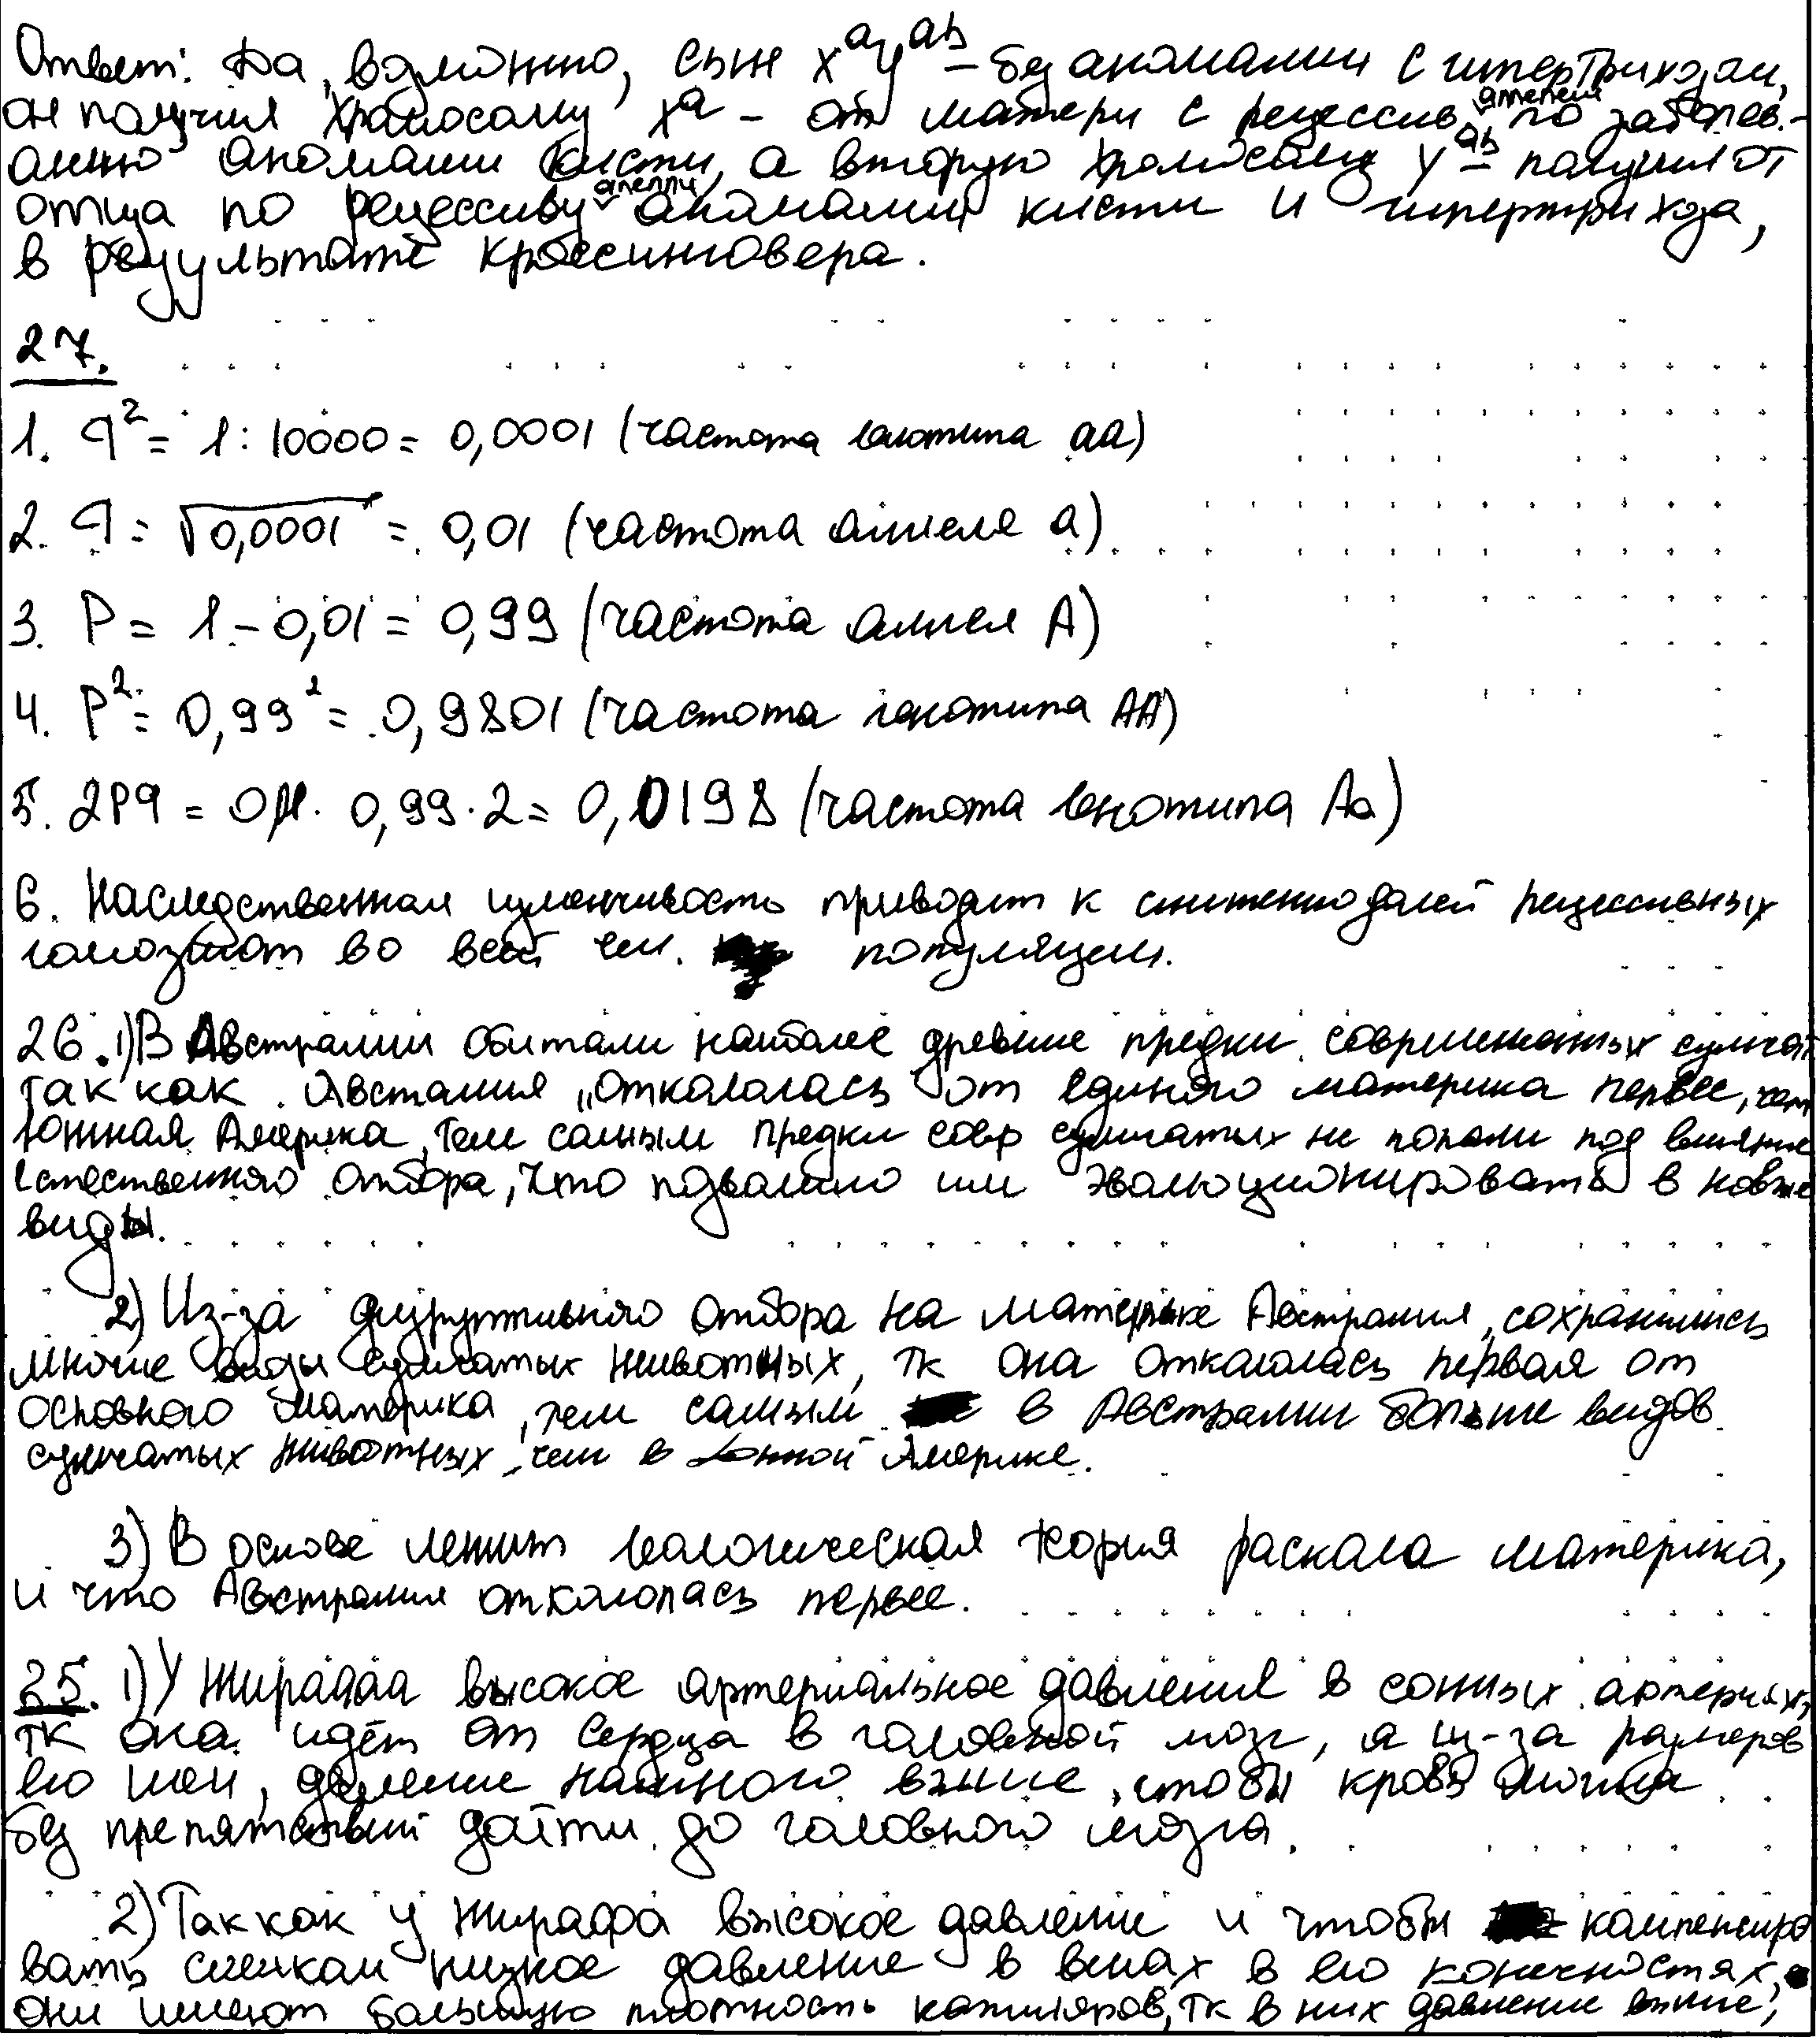 Ответ: Да, возможно, сын XᵃYᵃᵇ – без аномалии с гипертрихозом,
он получил хромосому Xᵃ – от матери с рецессив. аллелей по заболев.-
анию аномалии кисти, а вторую хромосому Yᵃᵇ – получил от
отца по рецессиву аллелли аномалии кисти и гипертрихоза,
в результате кроссинговера.
27.
1. q² = 1 : 10000 = 0,0001 (частота генотипа aa)
2. q = √0,0001 = 0,01 (частота аллеля a)
3. P = 1 - 0,01 = 0,99 (частота аллел A)
4. P² = 0,99² = 0,9801 (частота генотипа AA)
5. 2Pq = 0,01 · 0,99 · 2 = 0,0198 (частота генотипа Aa)
6. Наследственная изменчивость приводит к снижению долей рецессивных
гомозигот во всей чел. популяции.
26. 1) В Австралии обитали наиболее древние предки современных сумчат
так как Австалия „откололась от единого материка первее, чем
Южная Америка, тем самым предки совр сумчатых не попали под влияние
естественного отбора, что позволило им эволюционировать в новые
виды.
2) Из-за дизруптивного отбора на материке Австралия, сохранились
многие виды сумчатых животных, тк она откололась первая от
основного материка, тем самым в Австралии больше видов
сумчатых животных, чем в Южной Америке.
3) В основе лежит геологическая теория раскола материка,
и что Австралия откололась первее.
25. 1) У жирафа высокое артериальное давление в сонных артериях,
тк она идёт от сердца в головной мозг, а из-за размеров
его шеи, давление намного выше, чтобы кровь могла
без препятствий дойти до головного мозга.
2) Так как у жирафа высокое давление и чтобы компенсиро
вать слишком низкое давление в венах в его конечностях,
они имеют большую плотность капиляров, тк в них давление выше,